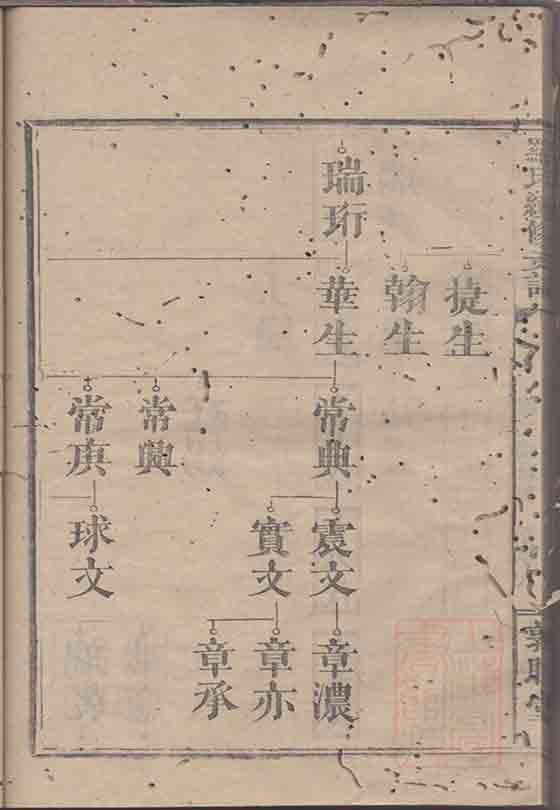 瑞珩
捷生
翰生
華生
常典
常興
常庚
震文
實文
球文
章濃
章亦
章承